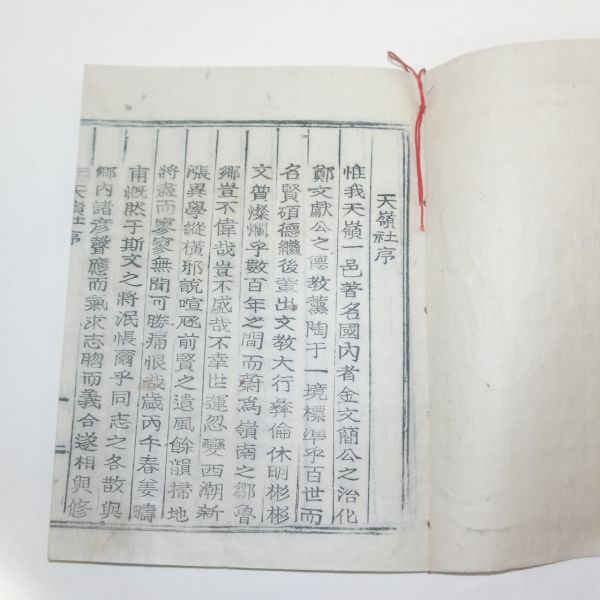 天嶺社序
惟我天嶺一邑著名國內者金文簡公之治化
鄭文獻公之德教薰陶于一境標準乎百世而
名賢碩德繼後輩出文教大行彝倫休明彬彬
文曾燦爛乎數百年之間而蔚爲嶺南之鄒魯
鄉豈不偉哉豈不盛哉不幸世運忽變西潮新
漲異學縱橫邪說喧豗前賢之遺風餘韻掃地
將盡而寥寥無聞可勝痛恨哉歲丙午春姜疇
甫慨然于斯文之將泯悵爾乎同志之各散與
鄉內諸彥聲應而氣求志吻而義合遂相與修
天嶺社序
二